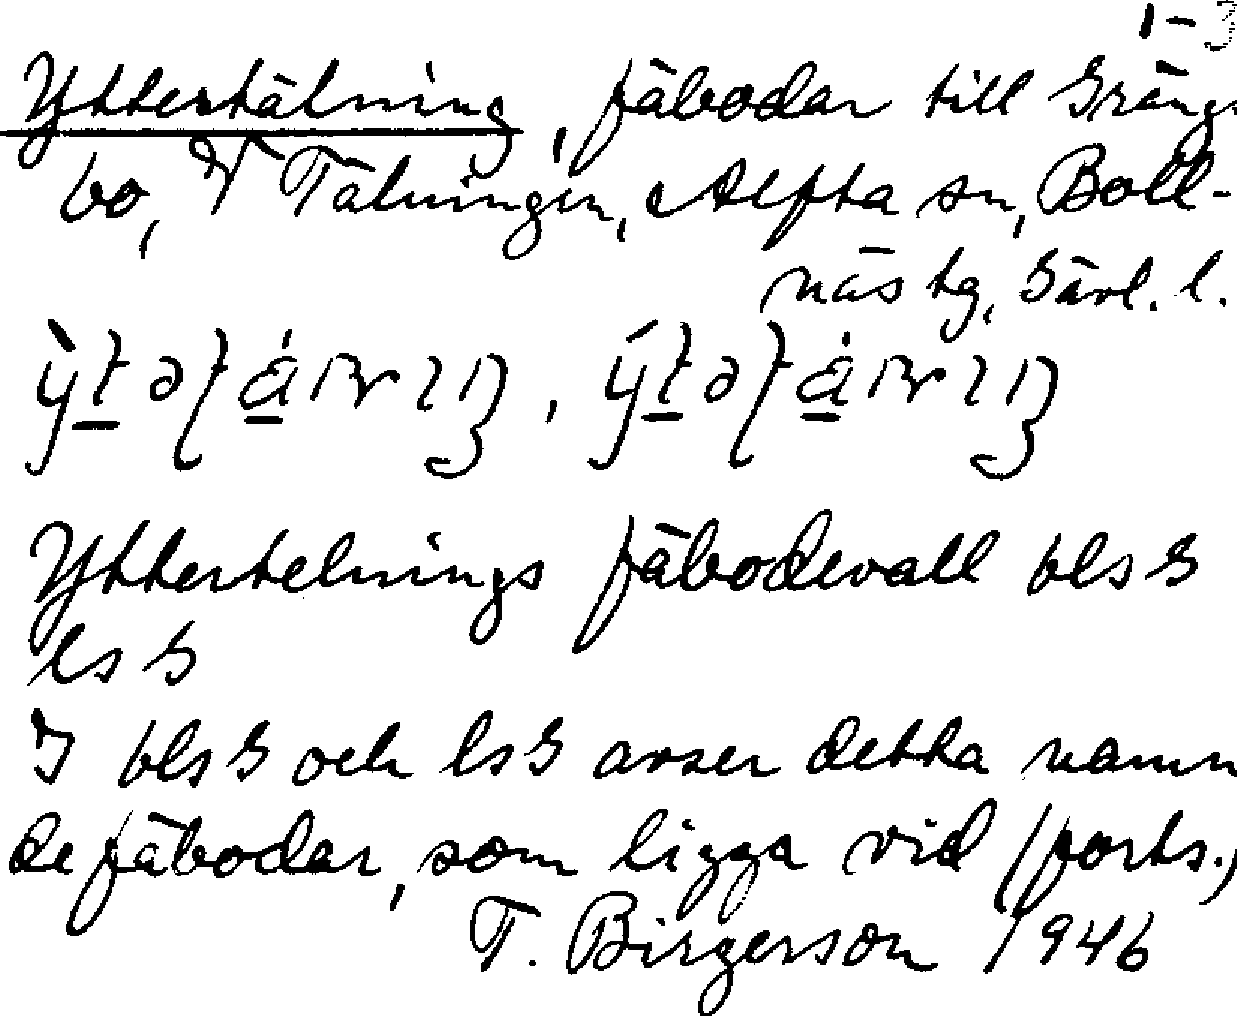 1-3
Yttertälning, fäbodar till Grängs
bo, V Tälningen, Alfta sn, Boll-
näs tg, Gävl. l.
Yttertelnings fäbodevall bls G
ls G
I bls G och ls G avser detta namn
de fäbodar, som ligga vid (forts.)
T. Birgerson 1946